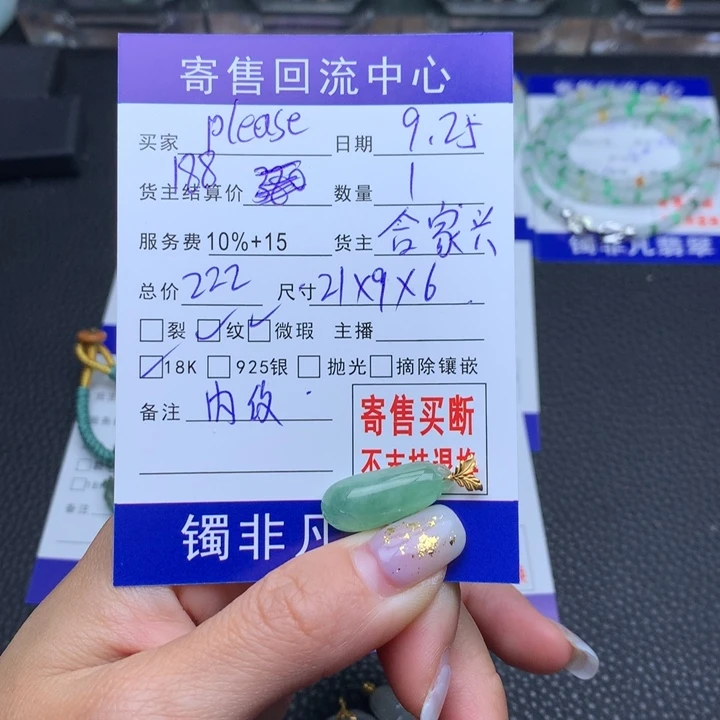 寄售回流中心
买家 please 日期 9.25
货主结算价 188 数量 1
服务费 10%+15 货主 合家兴
总价 222 尺寸 21X9X6
裂 纹 微瑕 主播
18K 925银 抛光 摘除镶嵌
备注 内纹
寄售买断
不支持退换
镯非凡
镯非凡翡翠
备注